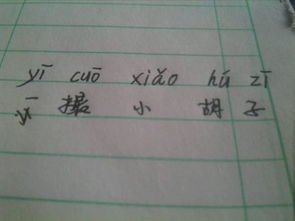 yī cuō xiǎo hú zī
yī 撮 小 胡 子